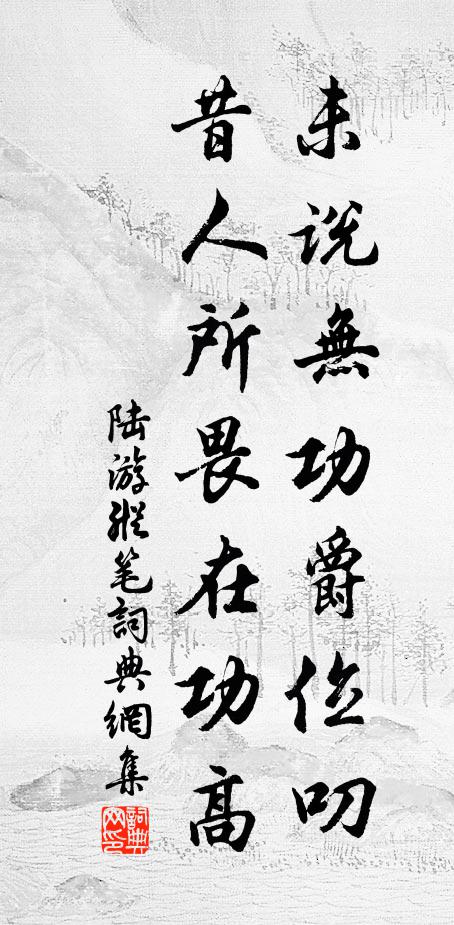 未説無功爵位叨
昔人所畏在功高
陆游縱笔詞典網集
詞典网印